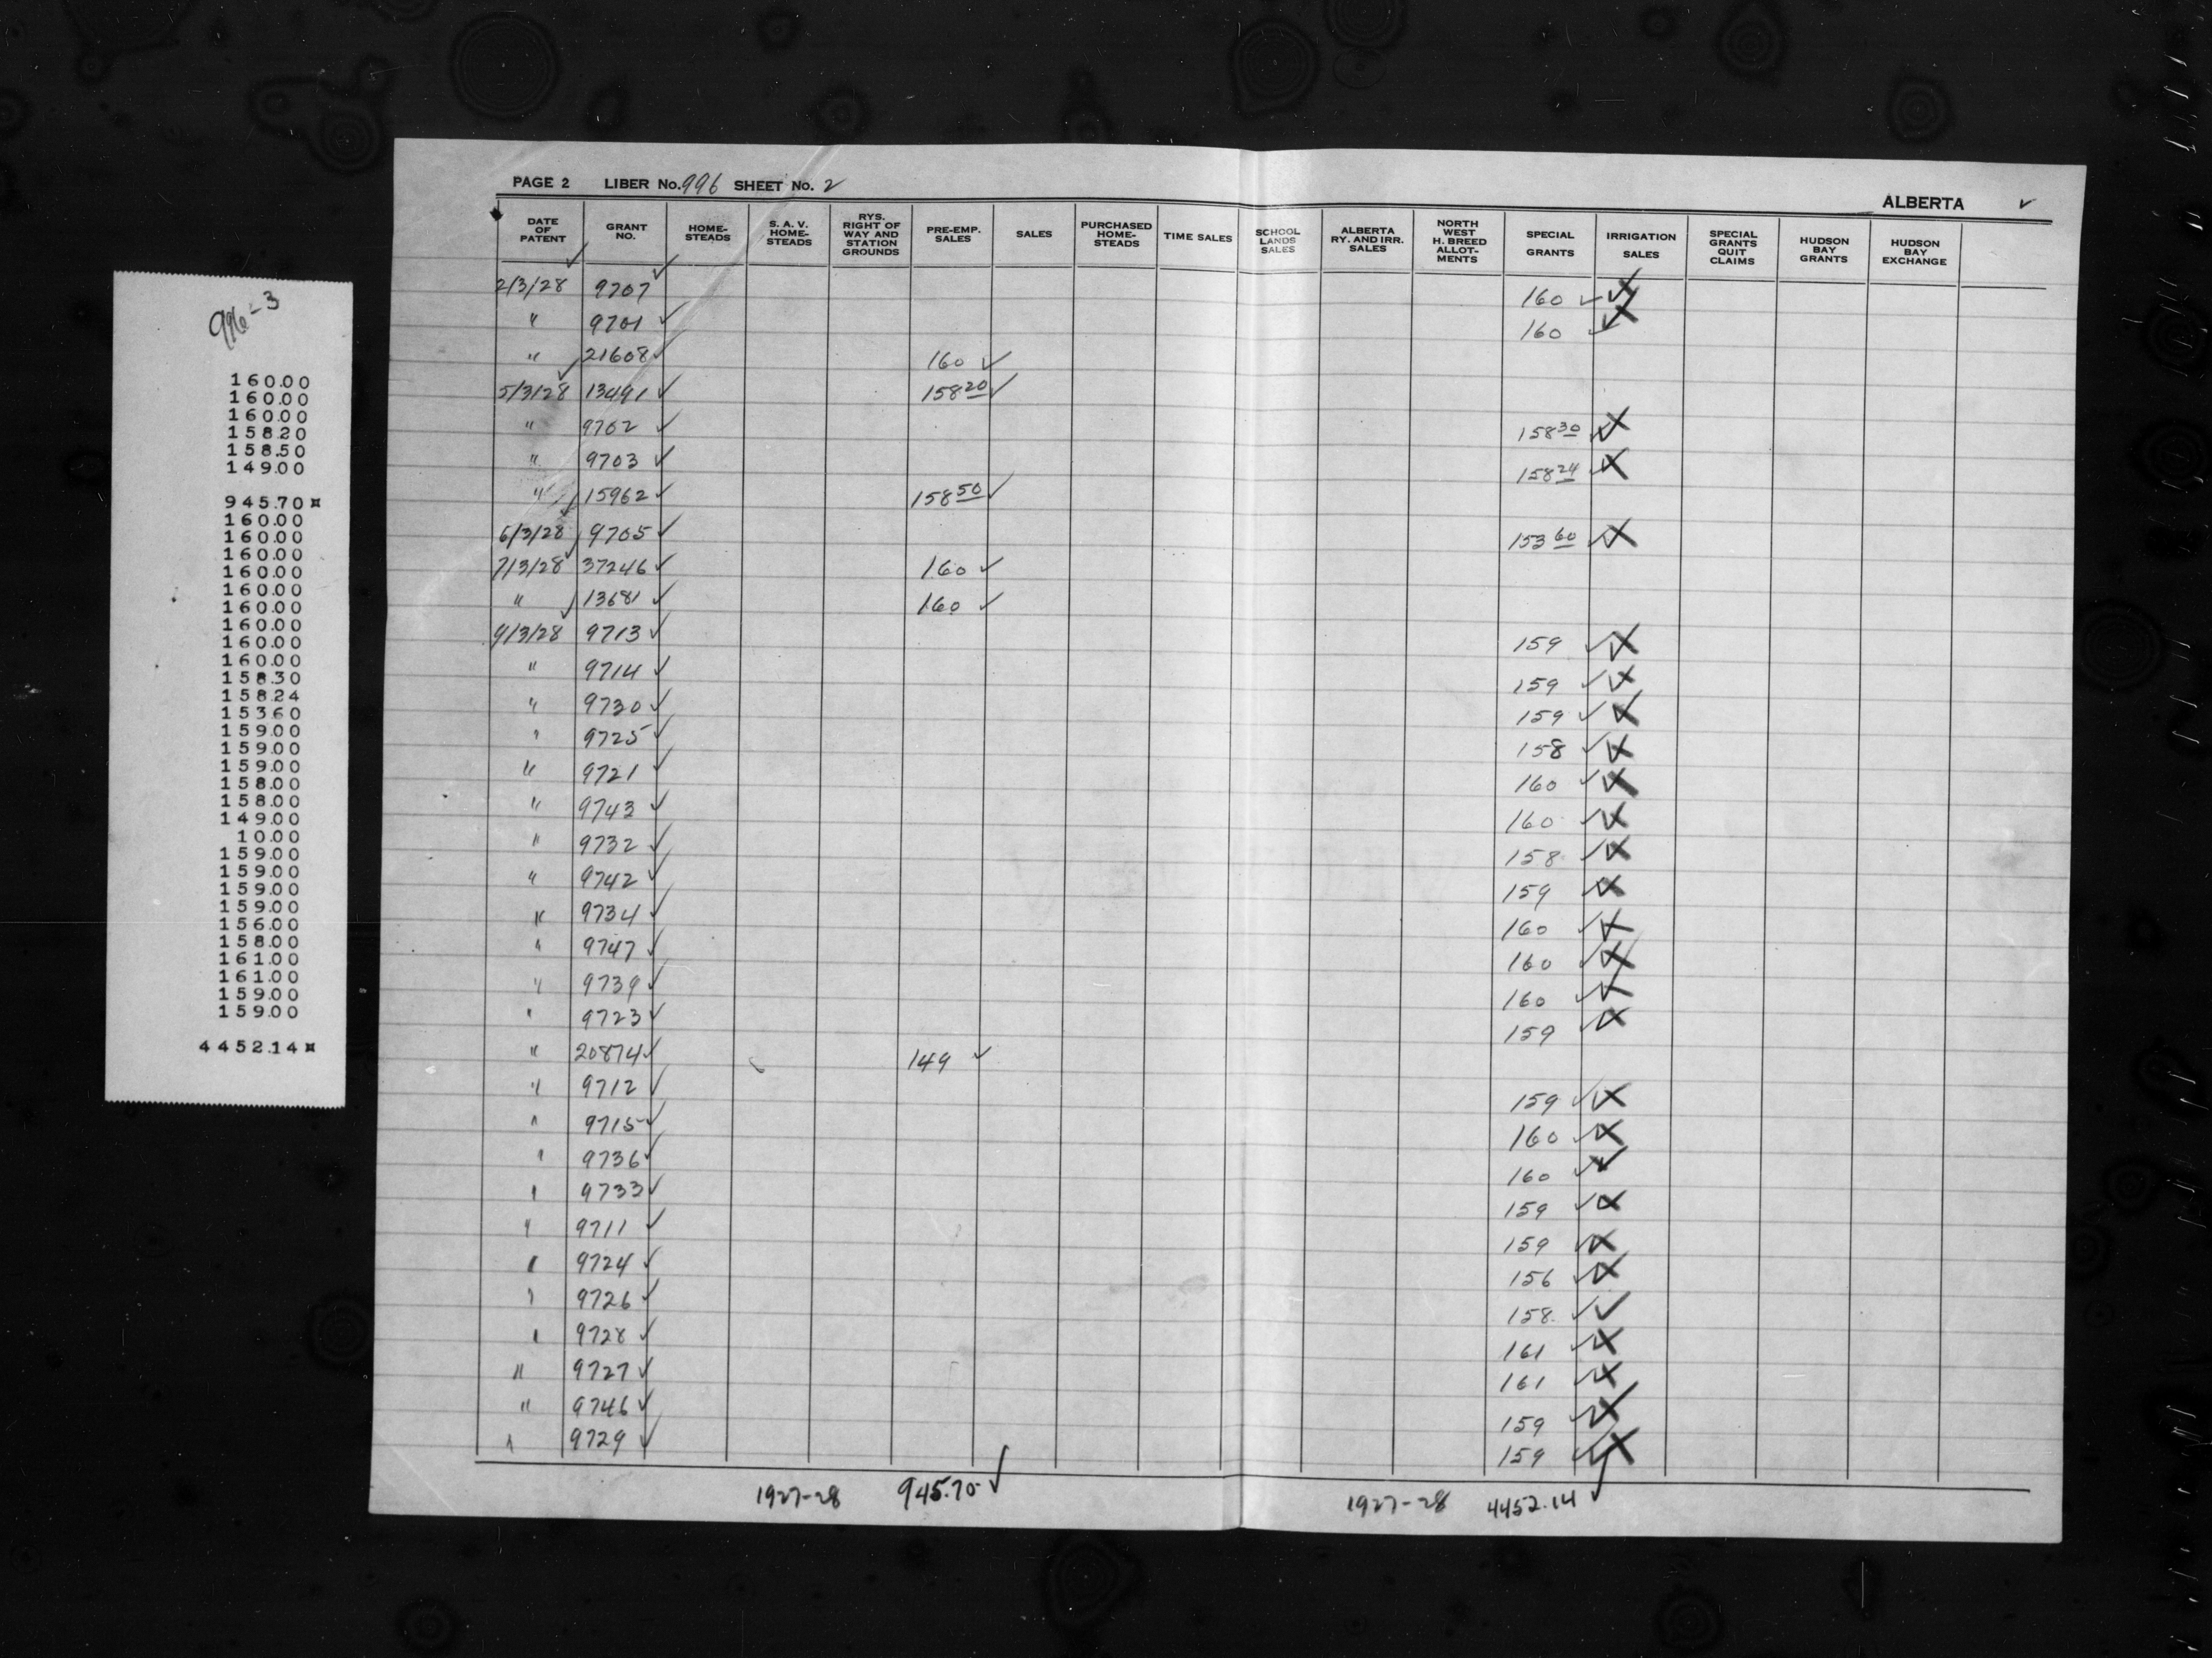 996-3
160.00
160.00
160.00
158.20
158.50
149.00
945.70¤
160.00
160.00
160.00
160.00
160.00
160.00
160.00
160.00
160.00
158.30
158.24
153.60
159.00
159.00
159.00
158.00
158.00
149.00
10.00
159.00
159.00
159.00
159.00
156.00
158.00
161.00
161.00
159.00
159.00
4452.14¤
PAGE 2 LIBER No. 996 SHEET No. 2
ALBERTA ✓
DATE OF PATENT GRANT NO. HOME-STEADS S. A. V. HOME-STEADS RYS. RIGHT OF WAY AND STATION GROUNDS PRE-EMP. SALES SALES PURCHASED HOME-STEADS TIME SALES SCHOOL LANDS SALES ALBERTA RY. AND IRR. SALES NORTH WEST H. BREED ALLOT-MENTS SPECIAL GRANTS IRRIGATION SALES SPECIAL GRANTS QUIT CLAIMS HUDSON BAY GRANTS HUDSON BAY EXCHANGE
2/3/28 9707 160
" 9701 160
" 21608 160
5/3/28 13491 158 20
" 9702 158 30
" 9703 158 24
" 15962 158 50
6/3/28 9705 153 60
7/3/28 37246 160
" 13681 160
9/3/28 9713 159
" 9714 159
" 9730 159
" 9725 158
" 9721 160
" 9743 160
" 9732 158
" 9742 159
" 9734 160
" 9747 160
" 9739 160
" 9723 159
" 20874 149
" 9712 159
" 9715 160
" 9736 160
" 9733 159
" 9711 159
" 9724 156
" 9726 158
" 9728 161
" 9727 161
" 9746 159
" 9729 159
1927-28 945.70 1927-28 4452.14